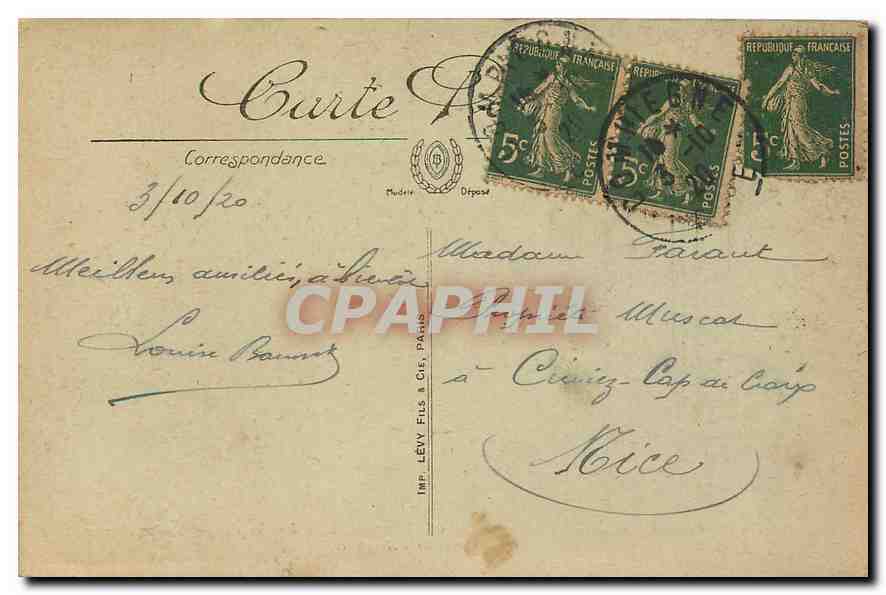 Carte
Correspondance
Modèle Déposé
B
REPUBLIQUE FRANÇAISE
5c
POSTES
REPUBLIQUE FRANÇAISE
5c
POSTES
REPUBLIQUE FRANÇAISE
5c
POSTES
3-10
20
3/10/20
Meilleurs amitiés, à bientôt
Louise
Madame
Muscat
à Cimiez-Cap de Croix
Nice
IMP. LÉVY FILS & CIE, PARIS
CPAPHIL